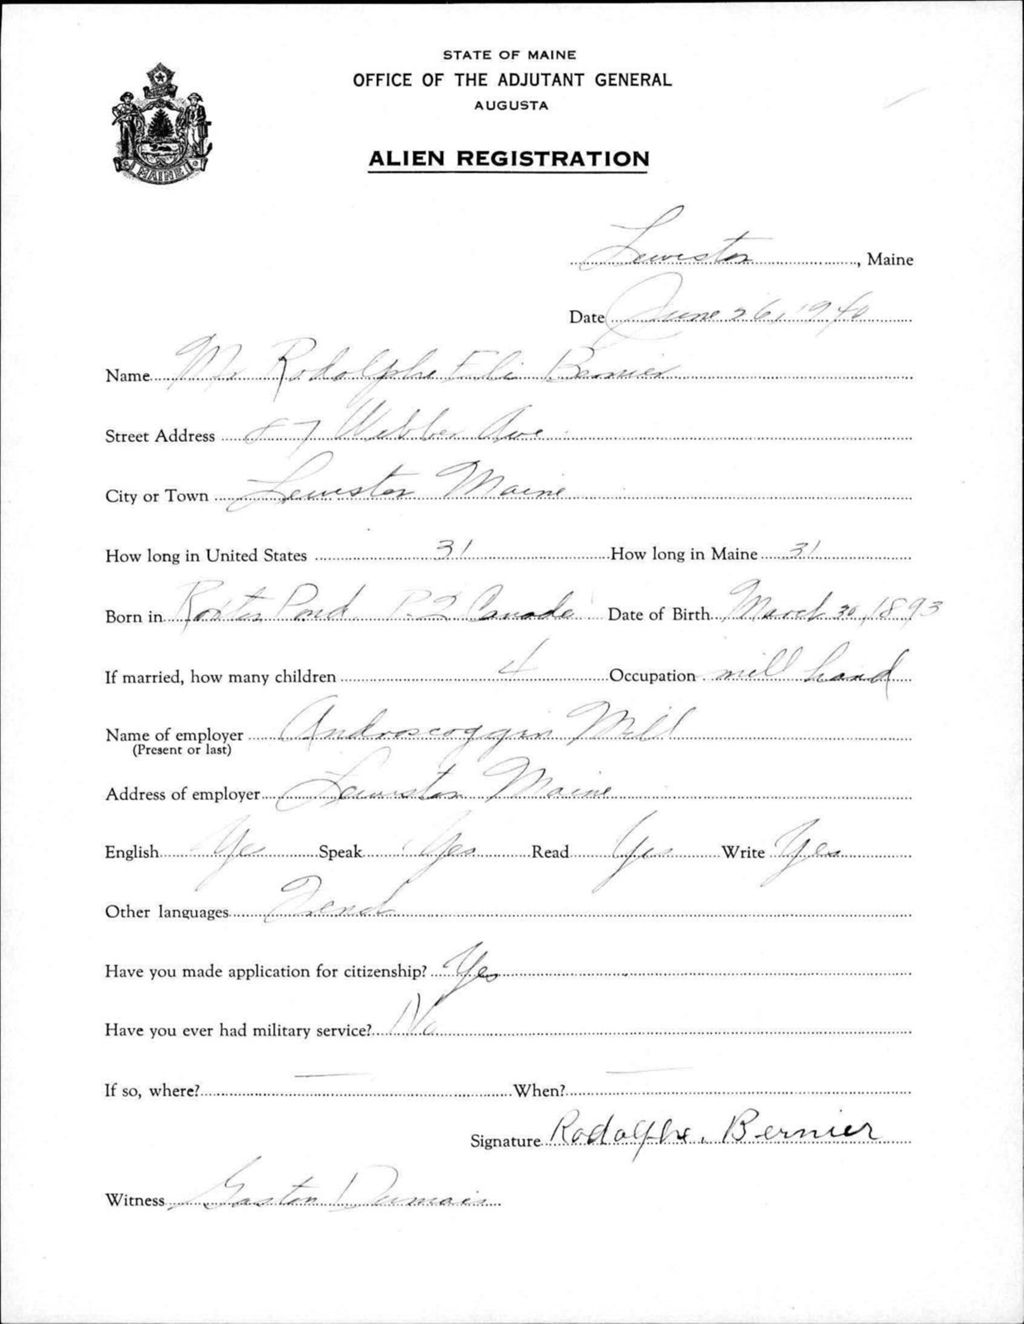 STATE OF MAINE
OFFICE OF THE ADJUTANT GENERAL
AUGUSTA
MAINE
ALIEN REGISTRATION
Lewiston, Maine
Date June 26, 1940
Name Mr Rodolphe Eli Bernier
Street Address 87 Webber Ave
City or Town Lewiston Maine
How long in United States 31 How long in Maine 31
Born in Pond P. Q Canada Date of Birth March 30, 1893
If married, how many children 4 Occupation mill hand
Name of employer Androscoggin Mill
(Present or last)
Address of employer Lewiston Maine
English Yes Speak Yes Read Yes Write Yes
Other languages French
Have you made application for citizenship? Yes
Have you ever had military service? No
If so, where? — When? —
Signature Rodolphe. Bernier
Witness Gaston Dumais